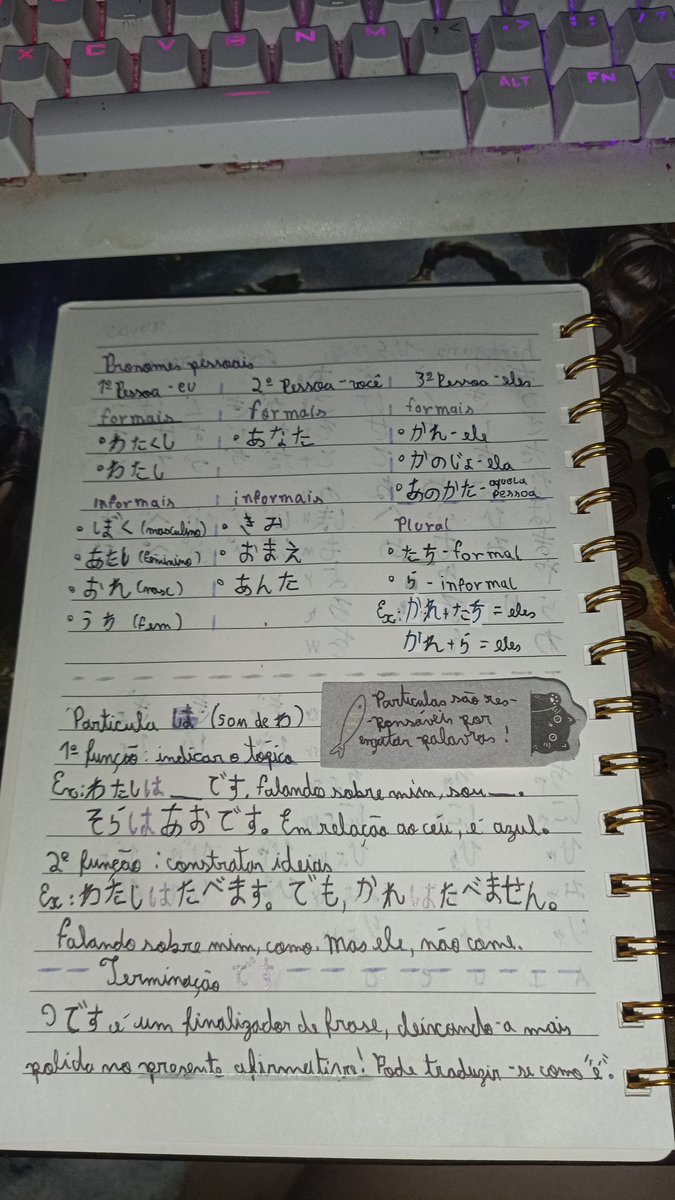 X C V B N M , < . > ; : / ?
ALT FN
Pronomes pessoais
1ª Pessoa - eu 2ª Pessoa - você 3ª Pessoa - eles
formais formais formais
• わたくし • あなた • かれ - ele
• わたし • かのじょ - ela
• あのかた - aquela pessoa
informais informais Plural
• ぼく (masculino) • きみ • たち - formal
• あたし (feminino) • おまえ • ら - informal
• おれ (masc) • あんた Ex: かれ + たち = eles
• うち (fem) かれ + ら = eles
Partículas são res-
ponsáveis por
engatar palavras!
Partícula は (som de わ)
1ª função: indicar o tópico
Ex: わたしは __ です, falando sobre mim, sou __.
そらはあおです。 Em relação ao céu, é azul.
2ª função: constratar ideias
Ex: わたしはたべます。でも, かれはたべません。
falando sobre mim, como. Mas ele, não come.
Terminação です
O です é um finalizador de frase, deixando-a mais
polida no presente afirmativo! Pode traduzir-se como "é".